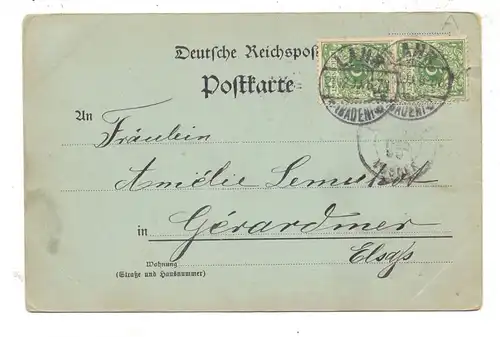 Deutsche Reichspost
Postkarte
LAHR
(BADEN)
LAHR
(BADEN)
An
Fräulein
Amélie
in Gérardmer
Elsaß
Wohnung
(Straße und Hausnummer)